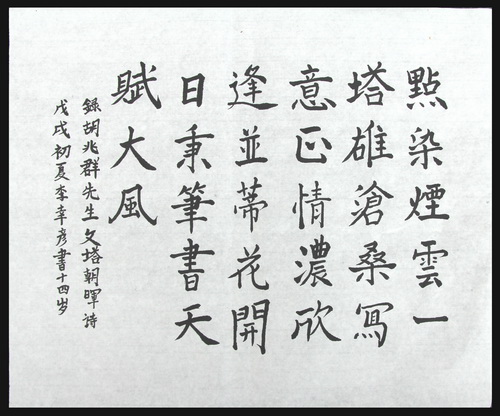 點染煙雲一
塔雄滄桑寫
意正情濃欣
逢並蒂花開
日秉筆書天
賦大風
錄胡兆群先生文塔朝暉詩
戊戌初夏李幸彦書十四岁